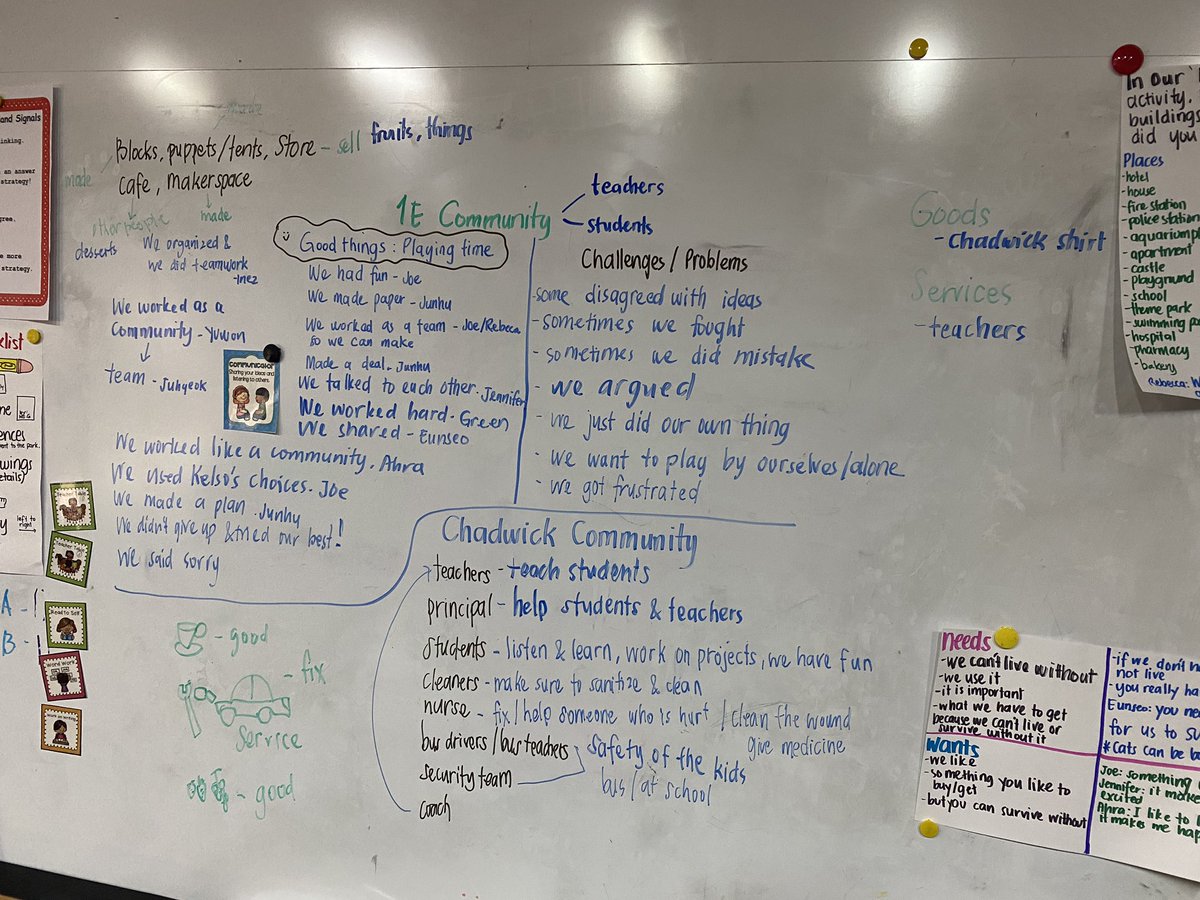 and Signals
inking.
an answer
strategy!
gree.
more
strategy.
Blocks, puppets/tents, Store - sell fruits, things
made
cafe, makerspace
other people
made
desserts
We organized &
we did teamwork
-Inez
We worked as a
Community - Yuwon
team - Juhyeok
Communicator
Sharing your ideas and
listening to others.
1E Community
teachers
students
Good things: Playing time
We had fun - Joe
We made paper - Junhu
We worked as a team - Joe/Rebeca
so we can make
Made a deal. Junhu
We talked to each other. Jennifer
We worked hard. Green
We shared - Eunseo
We worked like a community. Ahra
We used Kelso's choices. Joe
We made a plan. Junhu
We didn't give up & tried our best!
We said sorry
Challenges/Problems
-some disagreed with ideas
-sometimes we fought
-sometimes we did mistake
- we argued
- we just did our own thing
- we want to play by ourselves/alone
- we got frustrated
Goods
-Chadwick shirt
Services
-teachers
In Our
activity,
buildings
did you
Places
-hotel
-house
-fire station
-police station
-aquarium
-apartment
-castle
-playground
-school
-theme park
-swimming
-hospital
-pharmacy
-bakery
Rebecca:
Chadwick Community
teachers - teach students
principal - help students & teachers
students - listen & learn, work on projects, we have fun
cleaners - make sure to sanitize & clean
nurse - fix/help someone who is hurt / clean the wound
give medicine
bus drivers/bus teachers
safety of the kids
security team
bus/at school
coach
- good
- fix
Service
- good
list
ences
wings
etails)
left to
right
A -
B -
Read to Self
Word Work
needs
-we can't live without
-we use it
-it is important
-what we have to get
because we can't live or
survive without it
wants
-we like
-something you like to
buy/get
-but you can survive without
-if we don't
not live
-you really ha
Eunseo: you nee
for us to su
*Cats can be
Joe: something
Jennifer: it make
excited
Ahra: I like to
it makes me hap